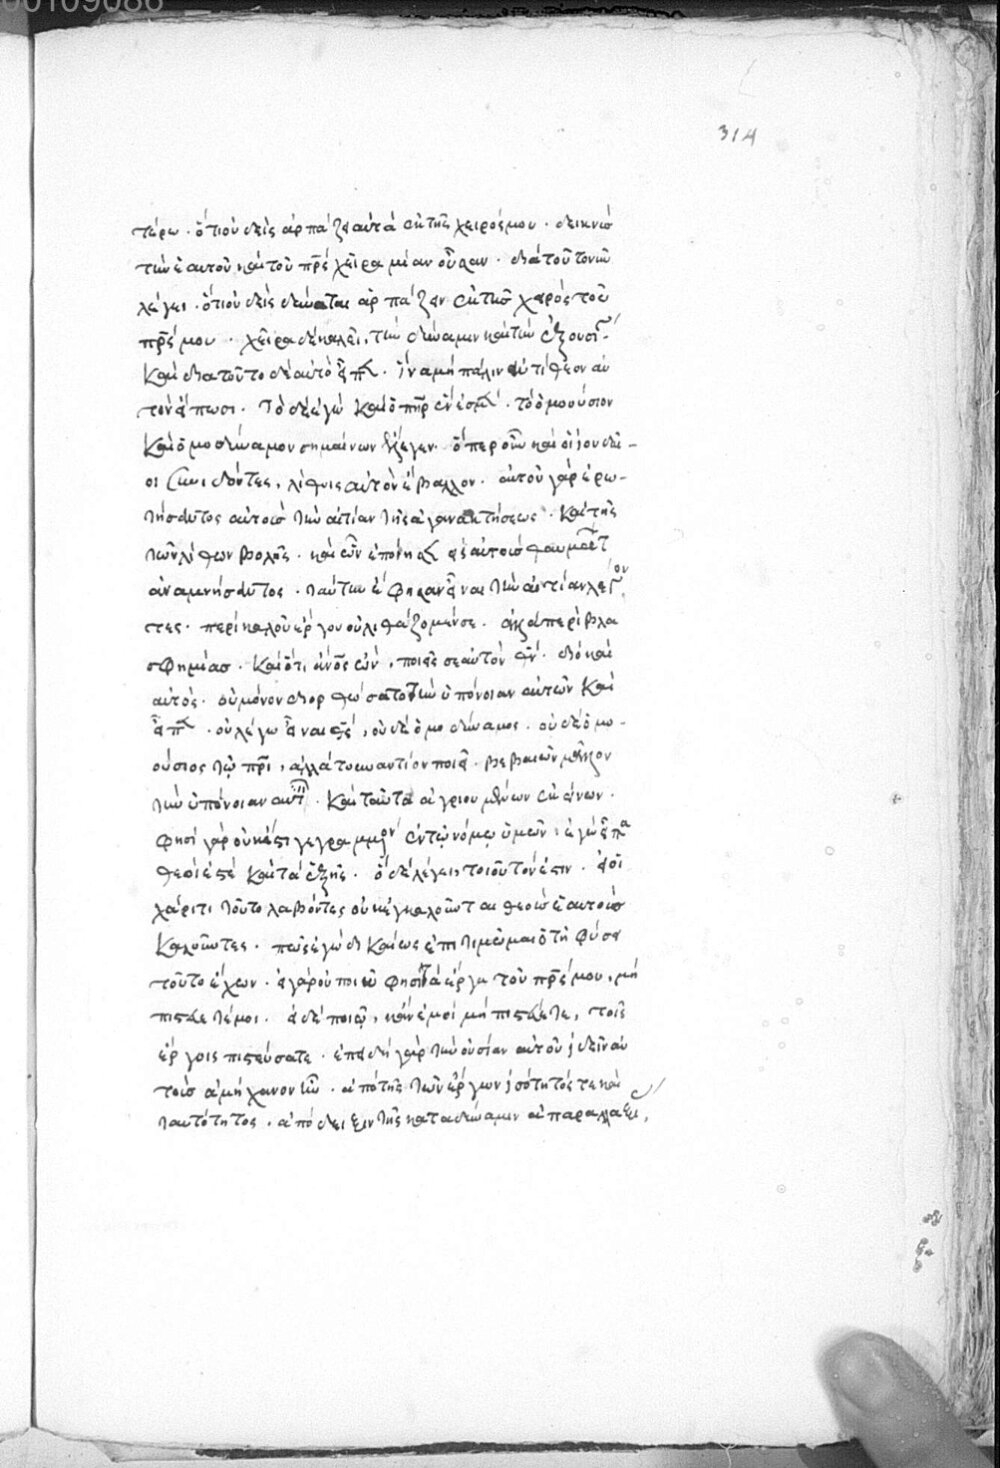 00109086
314
τέρω · ὅτι οὐδεὶς ἁρπάζει αὐτὰ ἐκ τῆς χειρός μου · δεικνὺσ
τὴν ἑαυτοῦ καὶ τοῦ πρς χεῖρα μίαν οὖσαν · διὰ τοῦτο νῦν
λέγει · ὅτι οὐδεὶς δύναται ἁρπάζειν ἐκ τῆσ χειρὸς τοῦ
πρς μου · χεῖρα δὲ καλεῖ, τὴν δύναμιν καὶ τὴν ἐξουσί
καὶ διὰ τοῦτο δὲ αὐτὸ εἶπε · ἵνα μὴ πάλιν ἀντίθεον αὐ
τὸν εἴπωσι · τὸ δὲ ἐγὼ καὶ ὁ πηρ ἕν ἐσμεν · τὸ ὁμοούσιον
καὶ ὁμοδύναμον σημαίνων ἔλεγεν · ὅπερ οὖν καὶ οἱ ἰουδαῖ-
οι συνιδόντες, λίθοις αὐτὸν ἔβαλλον · αὐτοῦ γὰρ ἐρω-
τήσαντος αὐτοὺσ τὴν αἰτίαν τῆς ἀγανακτήσεως · καὶ τῆς
τῶν λίθων βολῆς · καὶ ὧν ἐποίησεν εἰς αὐτοὺσ θαυμάτ
ἀναμνήσαντος · ταύτην ἔφησαν εἶναι τὴν αἰτίαν λέγον
τες · περὶ καλοῦ ἔργου οὐ λιθάζομέν σε · ἀλλὰ περὶ βλα
σφημίασ · καὶ ὅτι ἄνος ὤν, ποιεῖς σεαυτὸν θν · διὸ καὶ
αὐτὸς · οὐ μόνον διορθώσατο τὴν ὑπόνοιαν αὐτῶν καὶ
εἶπεν · οὐ λέγω εἶναι θς, οὐδὲ ὁμοδύναμος · οὐδὲ ὁμο-
ούσιος τῷ πρι, ἀλλὰ τοὐναντίον ποιεῖ · βεβαιῶν μᾶλλον
τὴν ὑπόνοιαν αὐτ · καὶ ταῦτα ἀγριουμένων ἐκείνων ·
φησὶ γὰρ οὐκ ἔστι γεγραμμένον ἐν τῷ νόμῳ ὑμῶν · ἐγὼ εἶπα
θεοί ἐστε καὶ τὰ ἑξῆς · ὃ δὲ λέγει, τοιοῦτόν ἐστιν · εἰ οἱ
χάριτι τοῦτο λαβόντες οὐκ ἐγκαλοῦνται θεοὺσ ἑαυτοὺσ
καλοῦντες · πῶς ἐγὼ δικαίως ἐπιτιμῶμαι ὁ τῇ φύσει
τοῦτο ἔχων · εἰ γὰρ οὐ ποιῶ φησὶ τὰ ἔργα τοῦ πρς μου, μὴ
πιστεύετέ μοι · εἰ δὲ ποιῶ, κἂν ἐμοὶ μὴ πιστεύετε, τοῖς
ἔργοις πιστεύσατε · ἐπειδὴ γὰρ τὴν οὐσίαν αὐτοῦ ἰδεῖν αὐ
τοὺσ ἀμήχανον ἦν · ἀπὸ τῆς τῶν ἔργων ἰσότητός τε καὶ
ταυτότητος · ἀπόδειξιν τῆς κατὰ δύναμιν ἀπαραλλαξί,